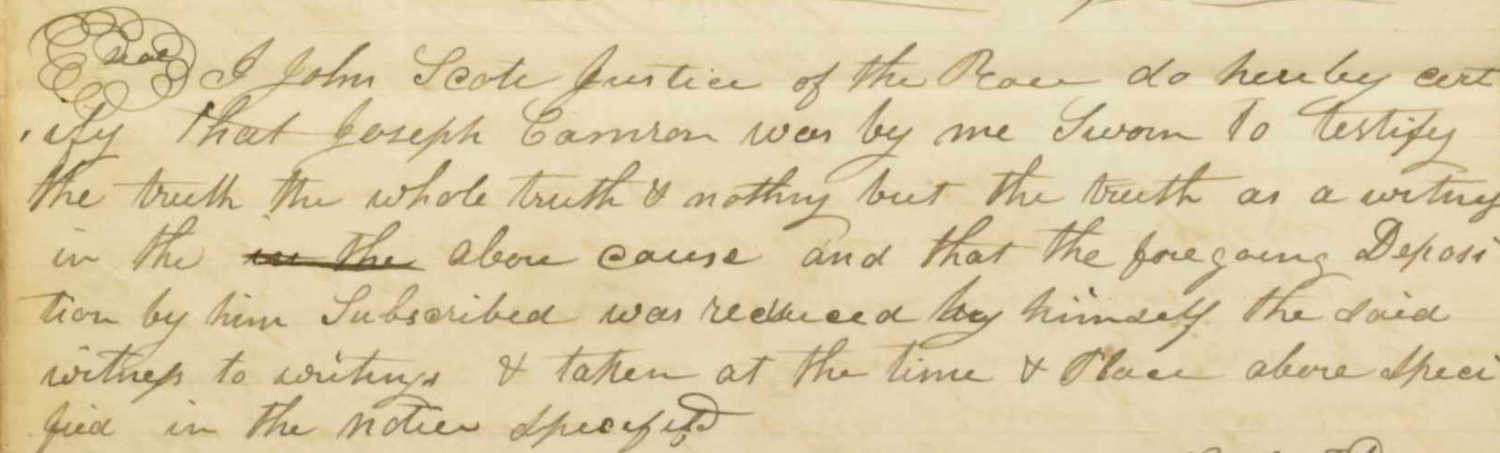 Seal I John Scote Justice of the Peace do hereby cert
ify that Joseph Camron was by me Sworn to testify
the truth the whole truth & nothing but the truth as a witness
in the in the above cause and that the foregoing Deposi
tion by him Subscribed was reduced by himself the said
witness to writings & taken at the time & Place above speci
fied in the notice specified